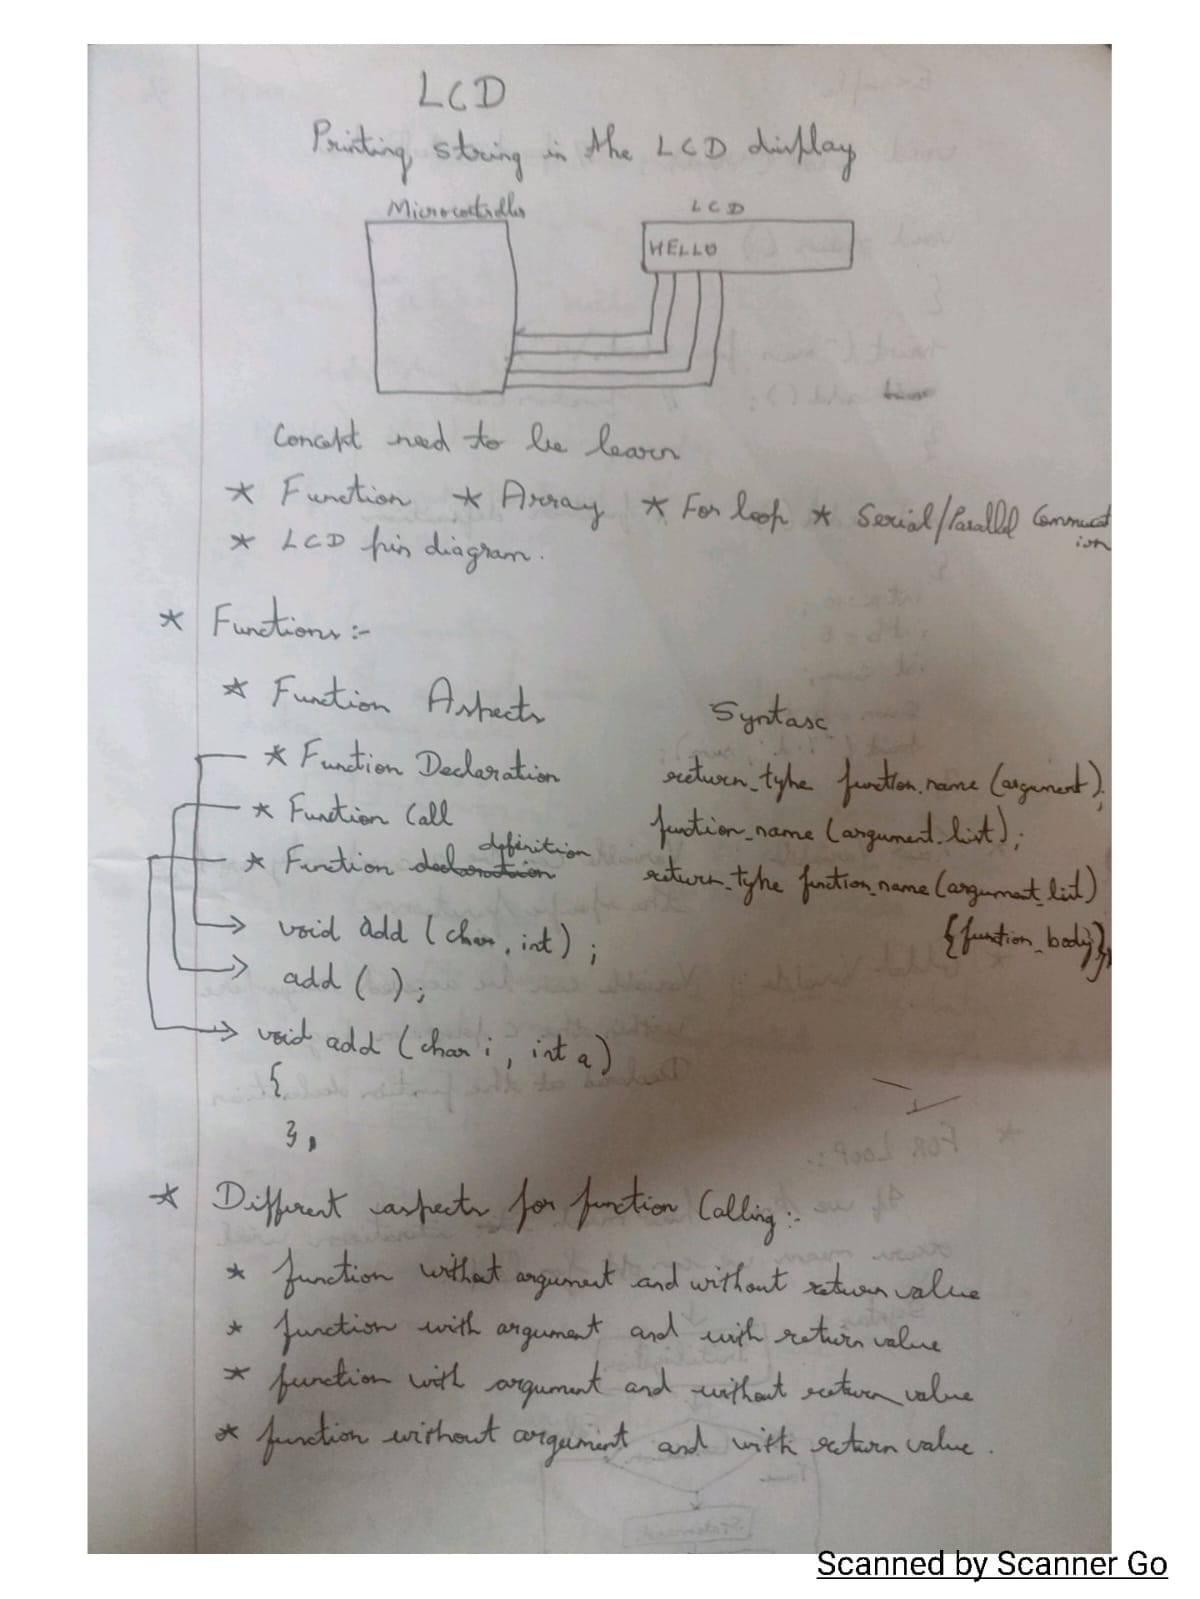 LCD
Printing string in the LCD display
Microcontroller LCD
HELLO
Concept need to be learn
* Function * Array * For loop * Serial/Parallel Communicat
ion
* LCD pin diagram.
* Functions :-
* Function Aspects Syntax
* Function Declaration return_type function_name (argument);
* Function Call function_name (argument_list);
* Function declaration definition return_type function_name (argument_list)
{function_body};
void add (char, int);
add ( );
void add (char i, int a)
{
},
* Different aspects for function Calling :-
* function without argument and without return value
* function with argument and with return value
* function with argument and without return value
* function without argument and with return value.
Scanned by Scanner Go